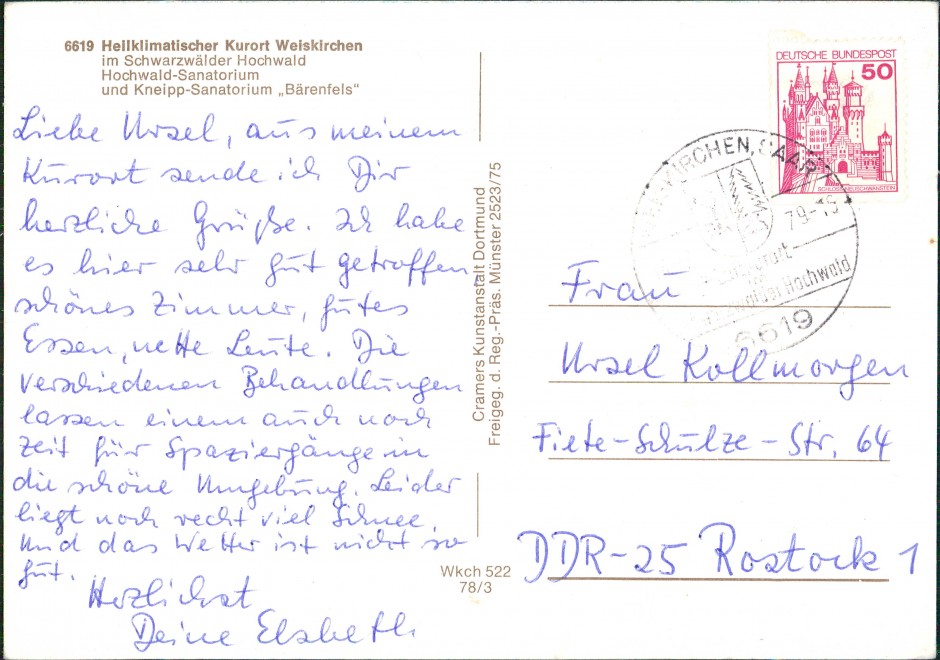 6619 Heilklimatischer Kurort Weiskirchen
im Schwarzwälder Hochwald
Hochwald-Sanatorium
und Kneipp-Sanatorium „Bärenfels“
Liebe Ursel, aus meinem
Kurort sende ich Dir
herzliche Grüße. Ich habe
es hier sehr gut getroffen,
schönes Zimmer, gutes
Essen, nette Leute. Die
verschiedenen Behandlungen
lassen einem auch noch
Zeit für Spaziergänge in
die schöne Umgebung. Leider
liegt noch recht viel Schnee,
und das Wetter ist nicht so
gut.
Herzlichst
Deine Elsbeth
Cramers Kunstanstalt Dortmund
Freigeg. d. Reg.-Präs. Münster 2523/75
Wkch 522
78/3
DEUTSCHE BUNDESPOST
50
SCHLOSS NEUSCHWANSTEIN
KIRCHEN, SAAR
79-15
Hochwald
6619
Frau
Ursel Kollmorgen
Fiete-Schulze-Str. 64
DDR-25 Rostock 1